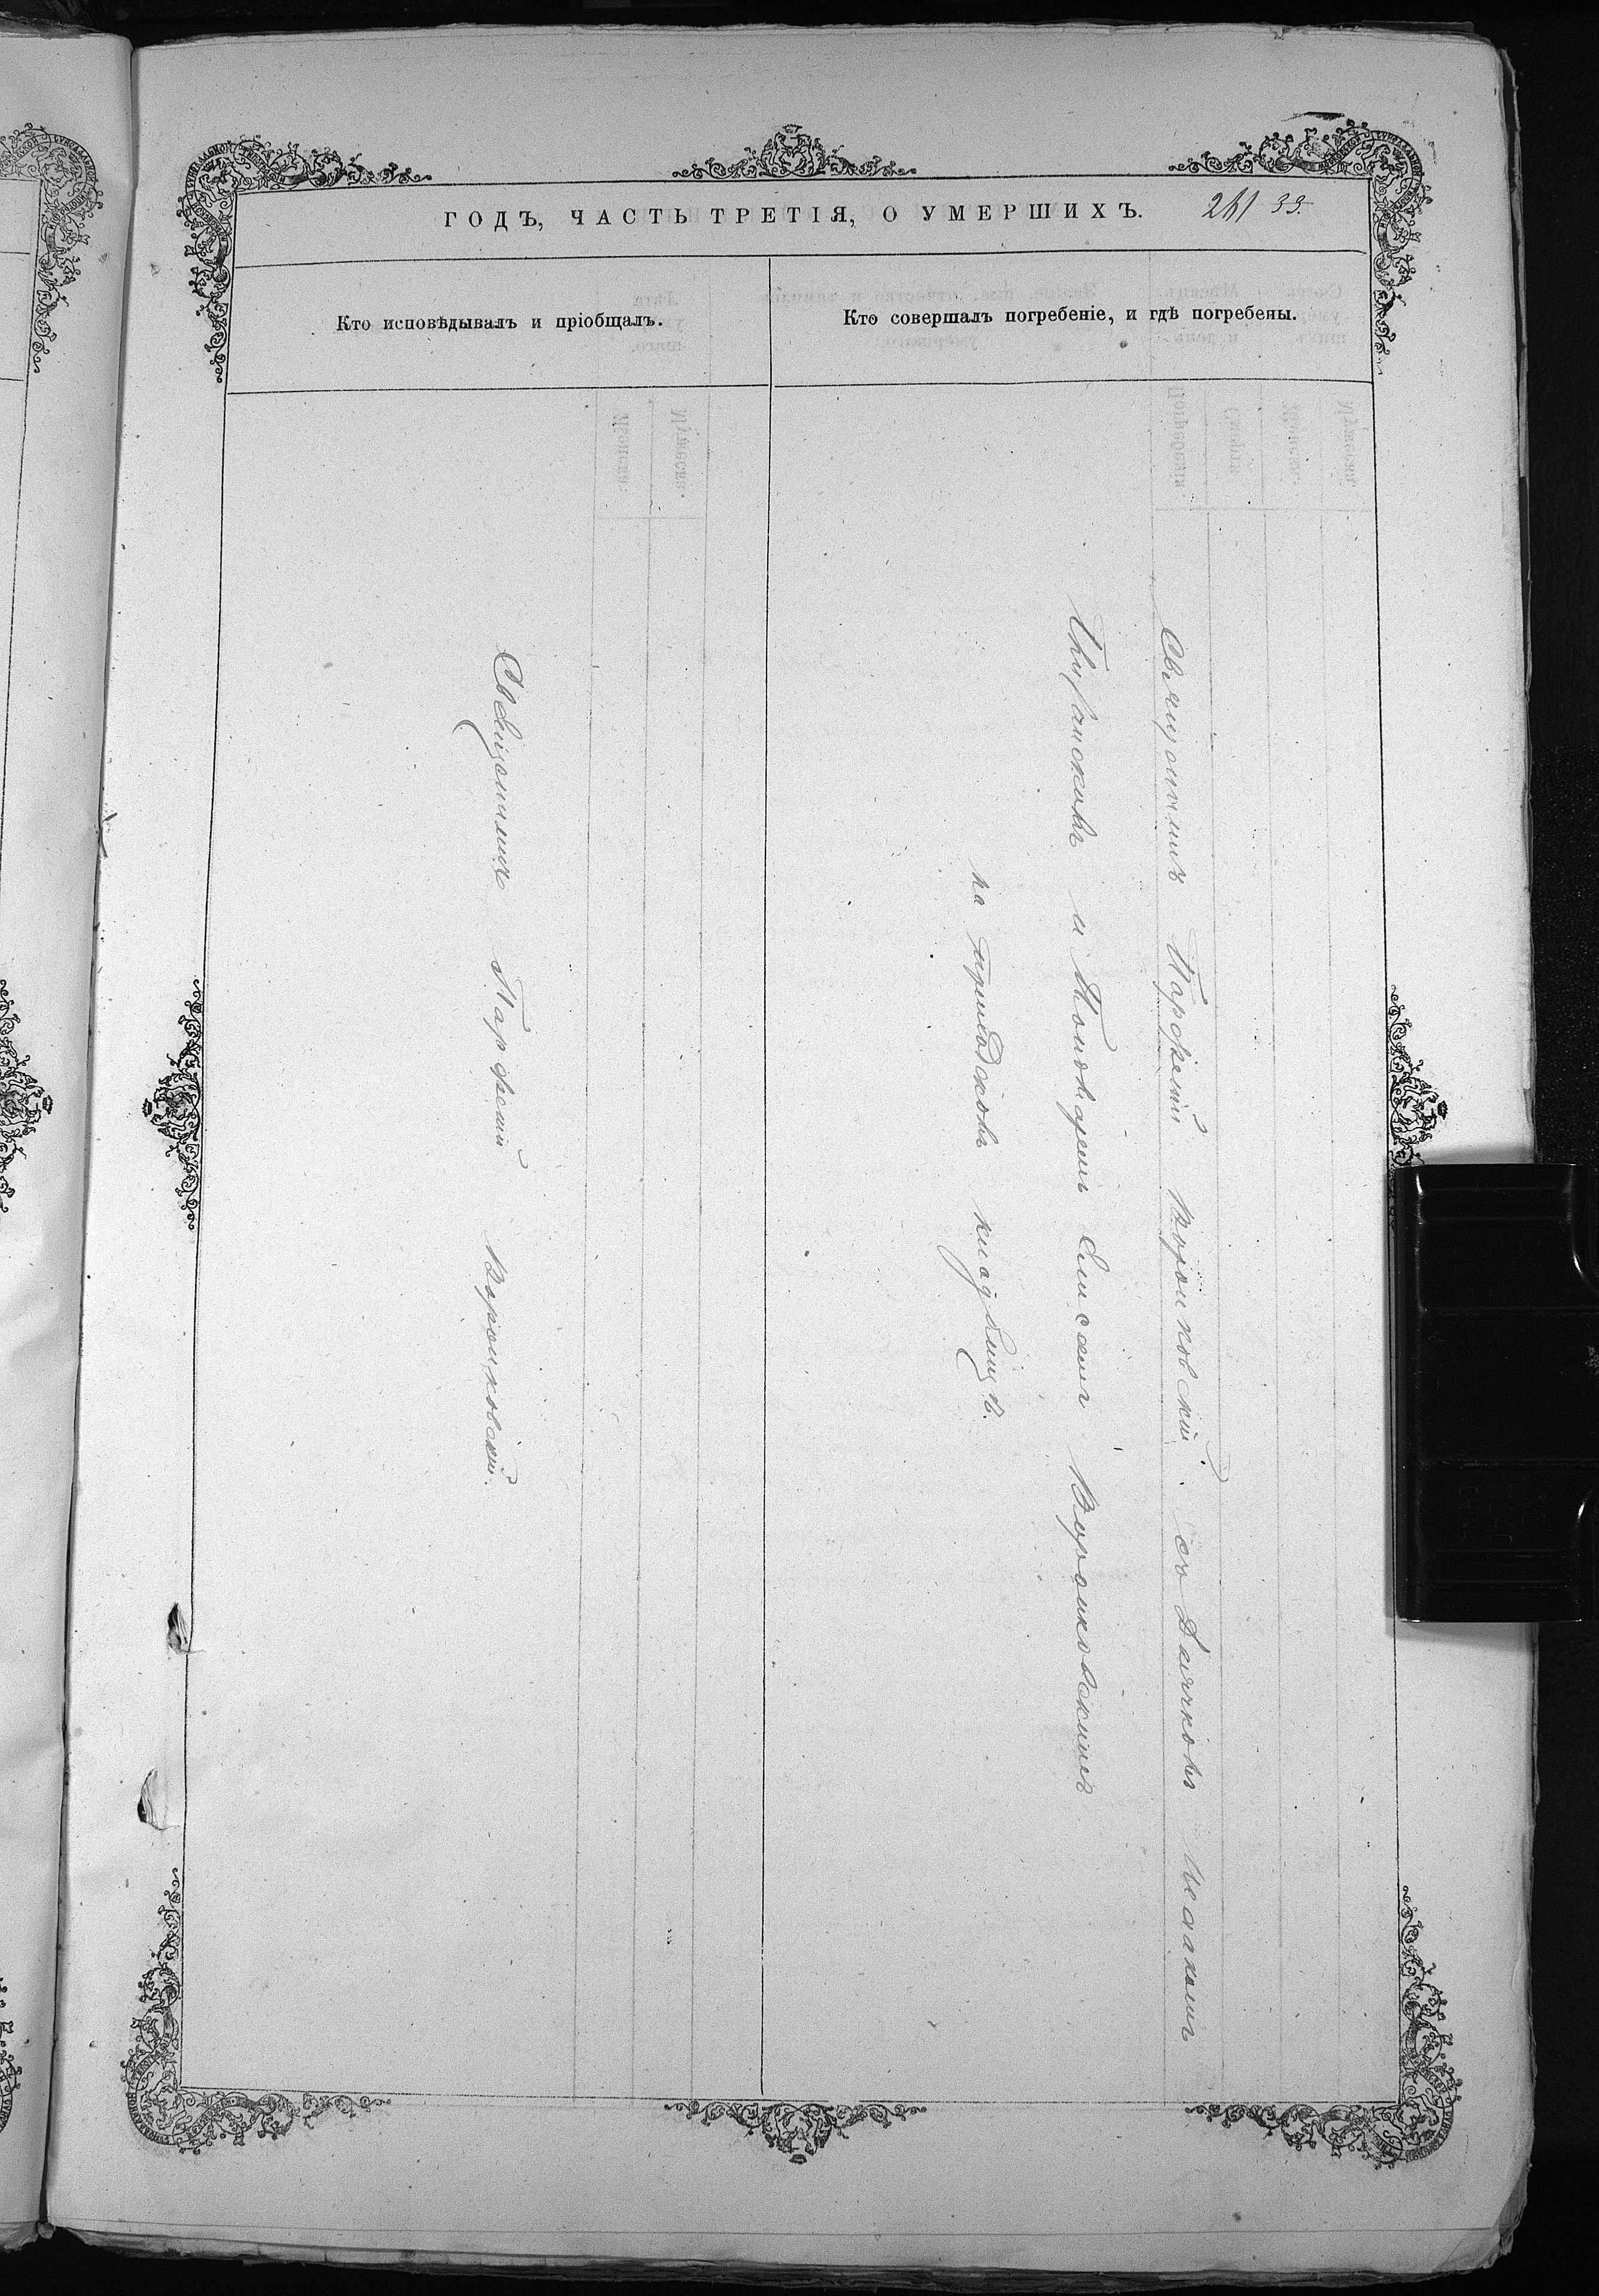 ГОДЪ, ЧАСТЬ ТРЕТІЯ, О УМЕРШИХЪ.
261 33.
Кто исповѣдывалъ и пріобщалъ.
Кто совершалъ погребеніе, и гдѣ погребены.
Священникъ Парфеній Воронковскій
Священникъ Парфеній Воронковскій съ Дьячкомъ Исаакомъ
и Пономаремъ Елисеемъ Воронковскимъ
на приходскомъ кладбищѣ.